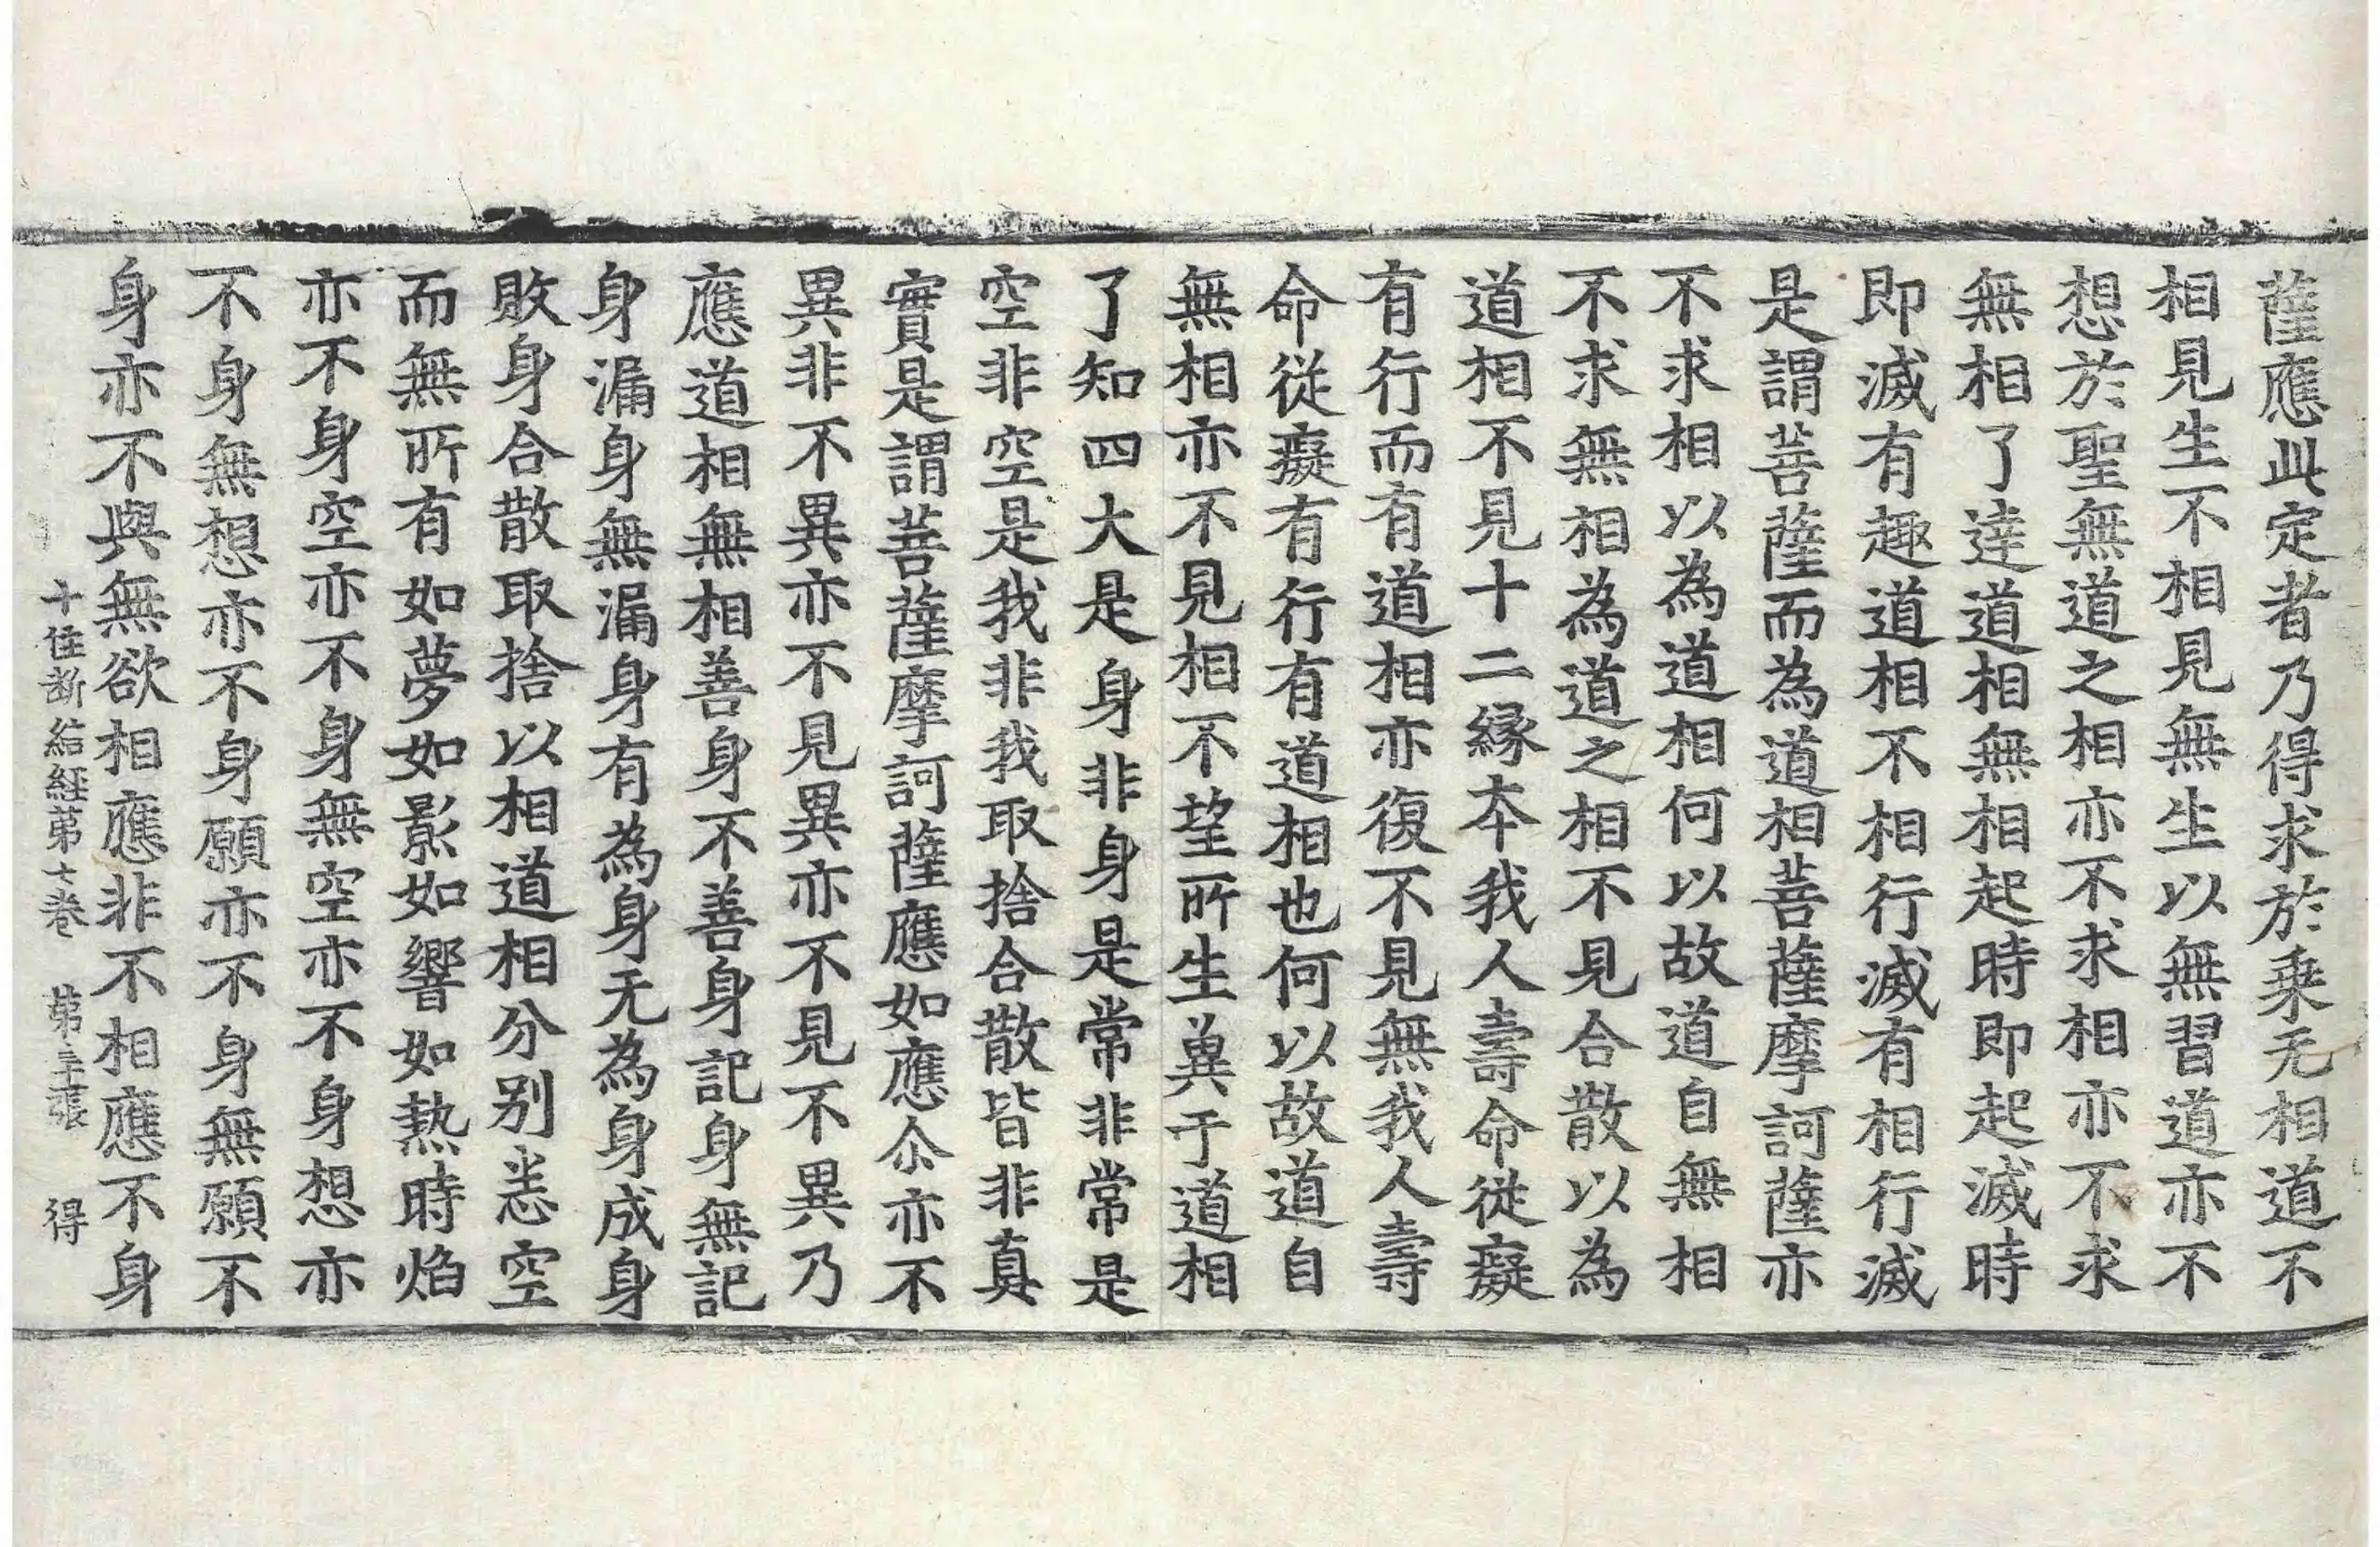 薩應此定者乃得求於乗无相道不
相見生不相見無生以無習道亦不
想於聖無道之相亦不求相亦不求
無相了達道相無相起時即起滅時
即滅有趣道相不相行滅有相行滅
是謂菩薩而為道相菩薩摩訶薩亦
不求相以為道相何以故道自無相
不求無相為道之相不見合散以為
道相不見十二縁夲我人壽命從癡
有行而有道相亦復不見無我人壽
命從癡有行有道相也何以故道自
無相亦不見相不望所生異于道相
了知四大是身非身是常非常是
空非空是我非我取捨合散皆非真
實是謂菩薩摩訶薩應如應尒亦不
異非不異亦不見異亦不見不異乃
應道相無相善身不善身記身無記
身漏身無漏身有為身无為身成身
敗身合散取捨以相道相分别恙空
而無所有如夢如影如響如熱時焰
亦不身空亦不身無空亦不身想亦
不身無想亦不身願亦不身無願不
身亦不與無欲相應非不相應不身
十住斷結經第七卷　第張　得